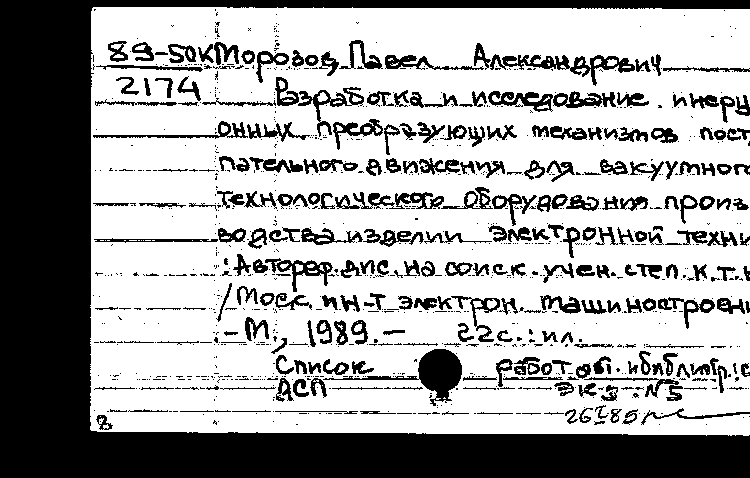 89-50К Морозов, Павел Александрович
2174
Разработка и исследование инерц
онных преобразующих механизмов пост
пательного движения для вакуумного
технологического оборудования произ
водства изделий электронной техни
: Автореф. дис. на соиск. учен. степ. к.т.н
/ Моск. ин-т электрон. машиностроени
- М., 1989. - 22с. : ил.
Список работ авт. и библиогр.: с
ДСП Экз. №5
8